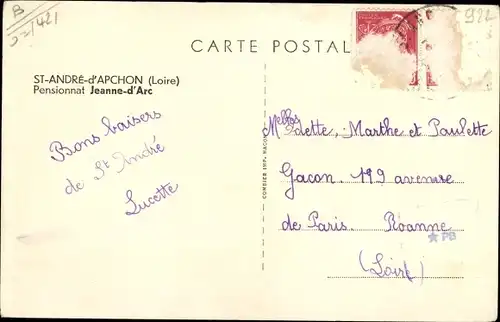 B
22/421
922
CARTE POSTAL
ST-ANDRÉ-d'APCHON (Loire)
Pensionnat Jeanne-d'Arc
Bons baisers
de St André
Lucette
COMBIER IMP. MACON
Melles Odette, Marthe et Paulette
Gacon 199 avenue
de Paris. Roanne
★ PB
(Loire)